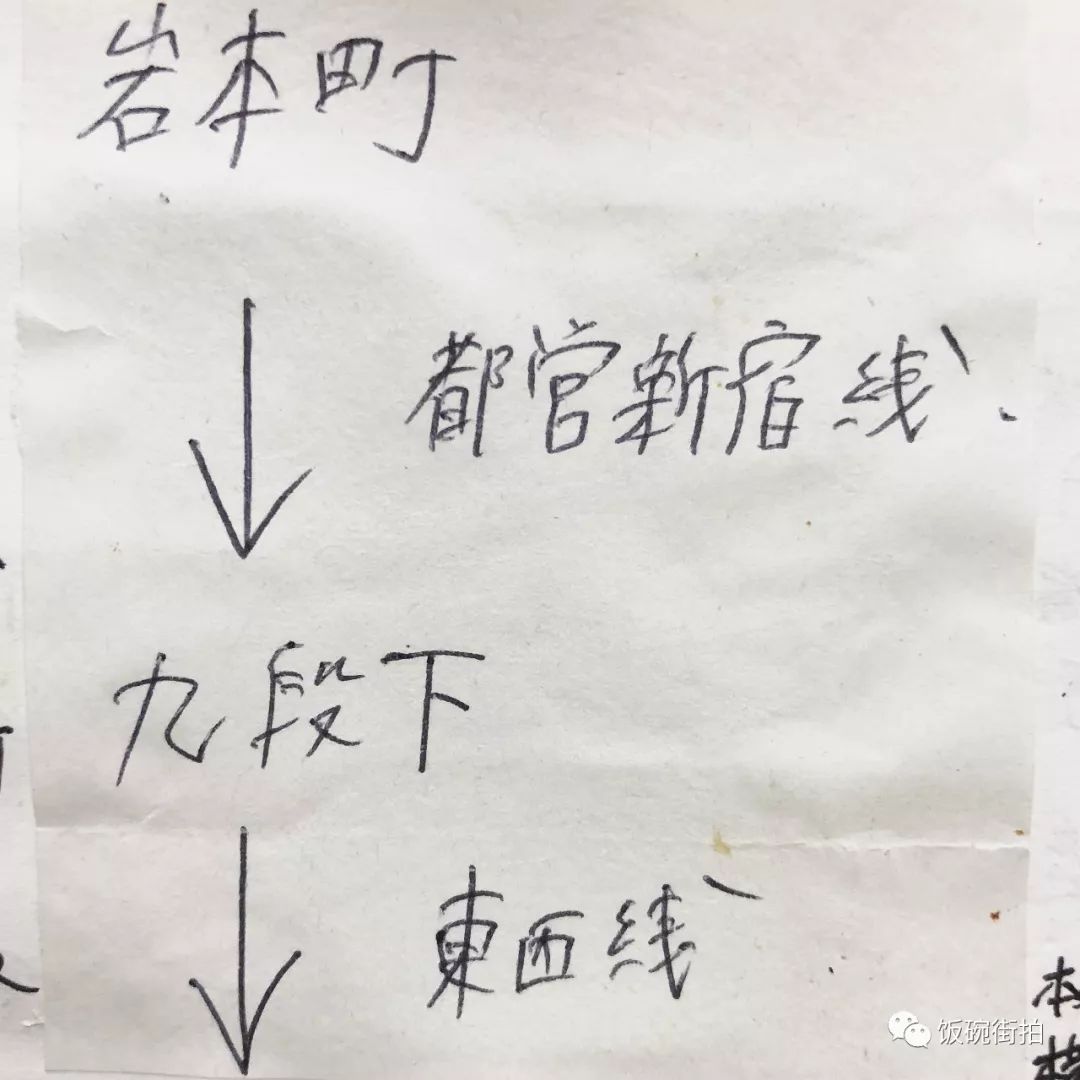 岩本町
↓
都营新宿线
九段下
↓
東西线
↓
本
饭碗街拍